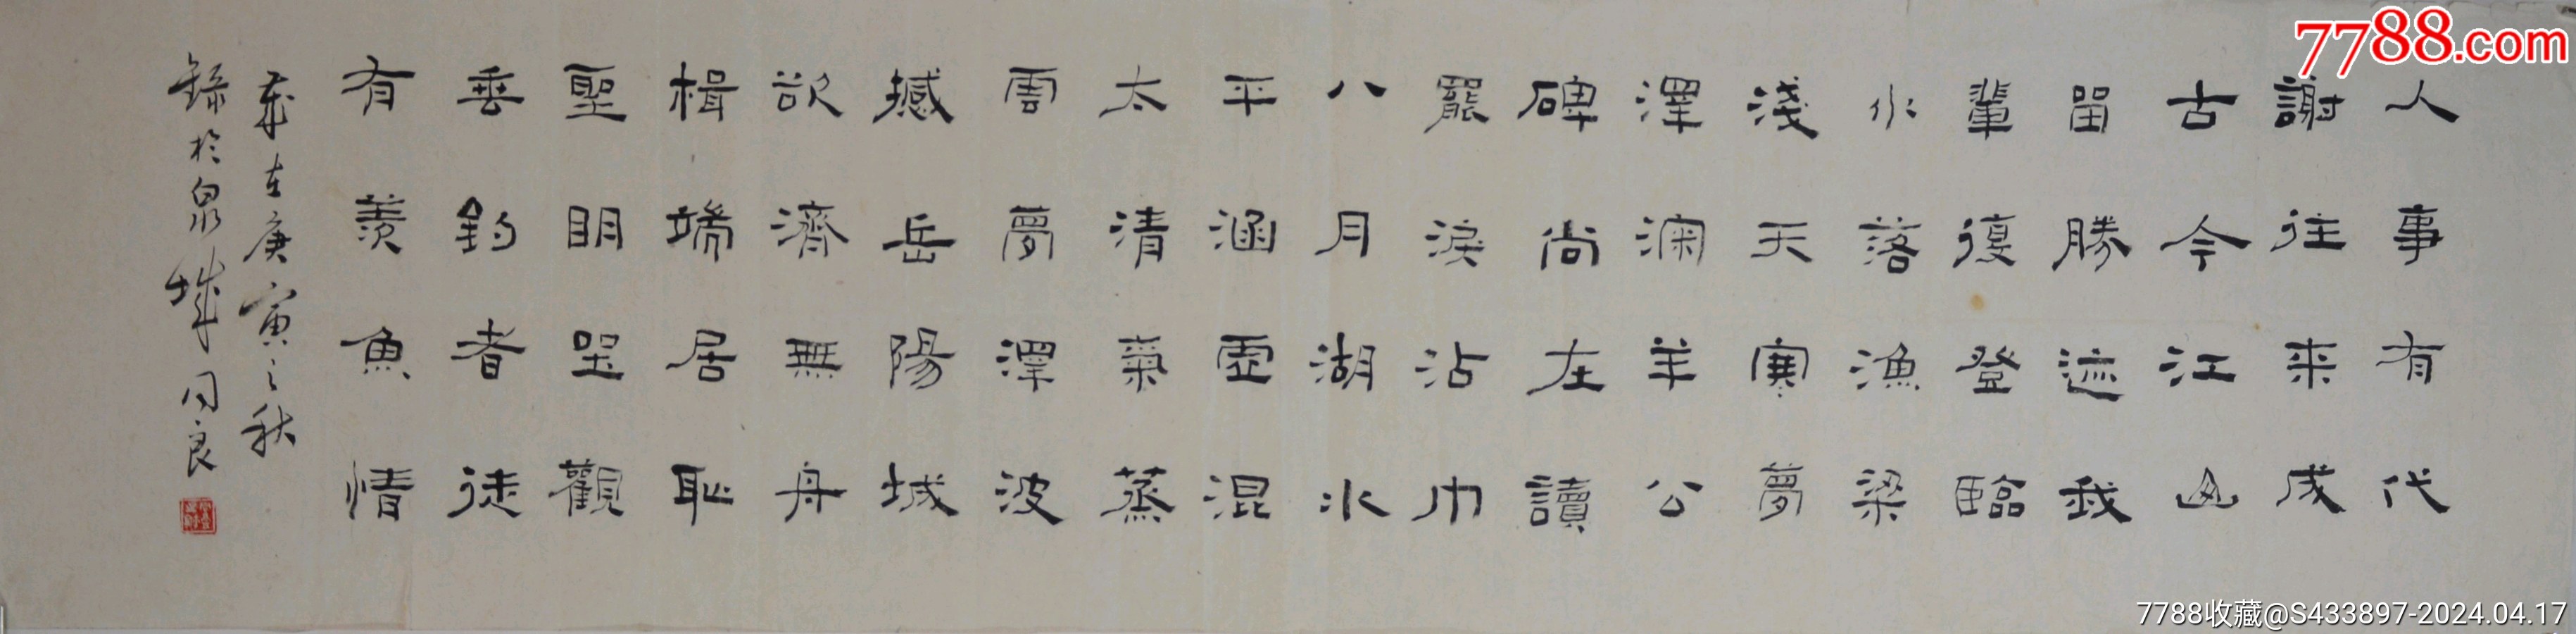 人事有代
謝往来成
古今江山
留勝迹我
輩復登臨
水落漁梁
淺天寒夢
澤深羊公
碑尚在讀
罷淚沾巾
八月湖水
平涵虛混
太清氣蒸
雲夢澤波
撼岳陽城
欲濟無舟
楫端居恥
聖明坐觀
垂釣者徒
有羨魚情
歲在庚寅之秋
錄於泉城同良
7788.com
7788收藏@S433897-2024.04.17